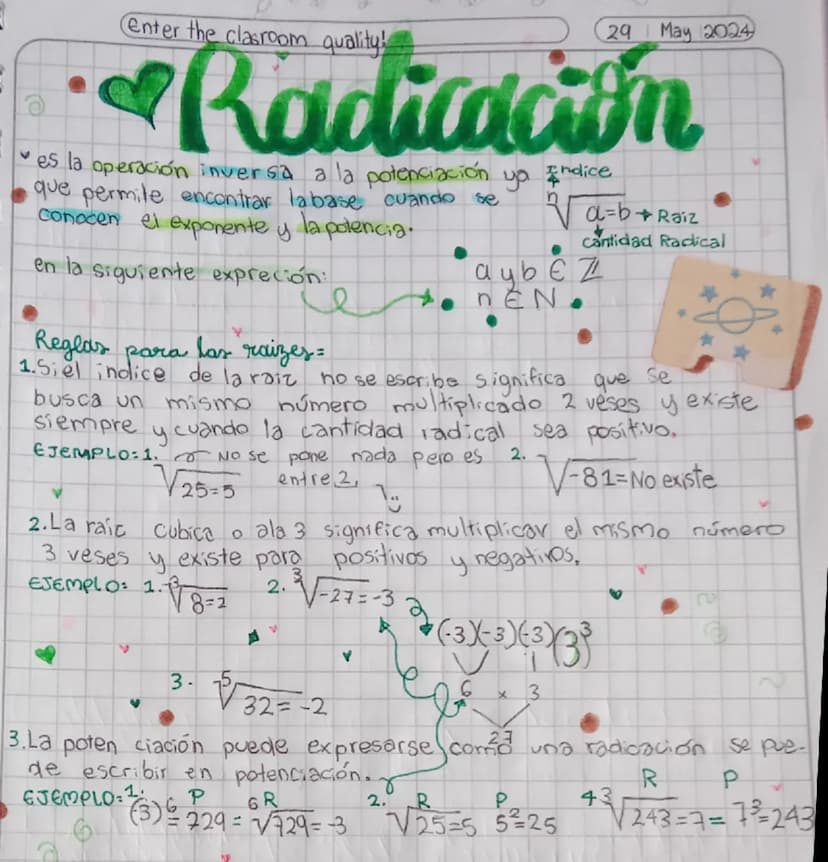 enter the clasroom quality!
29 May 2024
Radicación
es la operación inversa a la potenciación ya
que permite encontrar la base cuando se
conocen el exponente y la potencia.
Indice
n√a=b → Raiz
cantidad Radical
en la siguiente expreción:
a y b ∈ ℤ
n ∈ N
Reglas para las raizes=
1. Si el indice de la raiz no se escribe significa que se
busca un mismo número multiplicado 2 veses y existe
siempre y cuando la cantidad radical sea positivo.
EJEMPLO: 1. No se pone nada pero es 2. √-81= No existe
√25=5 entre 2,
2. La raic cubica o ala 3 significa multiplicar el mismo número
3 veses y existe para positivos y negativos.
EJEMPLO: 1. ³√8=2 2. ³√-27=-3
(-3)(-3)(-3)(3)³
6 x 3
27
3. ⁻⁵√32=-2
3. La poten ciación puede expresarse como una radicación se pue-
de escribir en potenciación.
EJEMPLO: 1. P R 2. R P R P
(3)⁶= 729 = ⁶√729=-3 √25=5 5²=25 4 ³√243=7= 7³=243